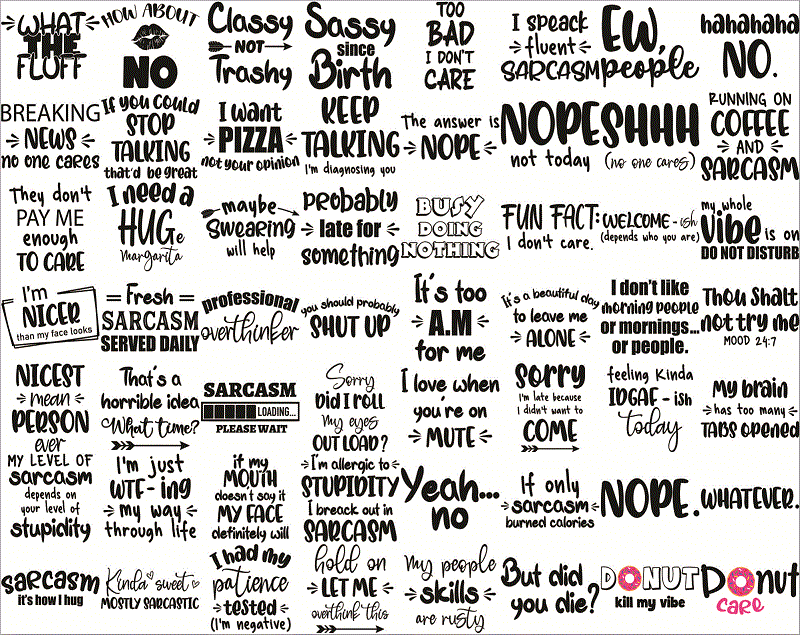 WHAT
THE
FLUFF
HOW ABOUT
NO
Classy
NOT
Trashy
Sassy
since
Birth
TOO
BAD
I DON'T
CARE
I speack
fluent
SARCASM
EW,
people
hahahaha
NO.
BREAKING
NEWS
no one cares
If you could
STOP
TALKING
that'd be great
I want
PIZZA
not your opinion
KEEP
TALKING
I'm diagnosing you
The answer is
NOPE
NOPE
not today
SHHH
(no one cares)
RUNNING ON
COFFEE
AND
SARCASM
They don't
PAY ME
enough
TO CARE
I need a
HUGe
Margarita
maybe
Swearing
will help
probably
late for
something
BUSY
DOING
NOTHING
FUN FACT:
I don't care.
WELCOME-ish
(depends who you are)
my whole
Vibe is on
DO NOT DISTURB
I'm
NICER
than my face looks
Fresh
SARCASM
SERVED DAILY
professional
overthinker
you should probably
SHUT UP
It's too
A.M
for me
It's a beautiful day
to leave me
ALONE
I don't like
morning people
or mornings...
or people.
Thou Shalt
not try me
MOOD 24:7
NICEST
mean
PERSON
ever
That's a
horrible idea
What time?
SARCASM
LOADING...
PLEASE WAIT
Sorry
DID I ROLL
My eyes
OUT LOAD?
I love when
you're on
MUTE
sorry
I'm late because
I didn't want to
COME
feeling Kinda
IDGAF-ish
today
My brain
has too many
TABS opened
MY LEVEL OF
sarcasm
depends on
your level of
stupidity
I'm just
WTF-ing
my way
through life
if my
MOUTH
doesn't say it
MY FACE
definitely will
I'm allergic to
STUPIDITY
I break out in
SARCASM
Yeah...
no
If only
sarcasm
burned calories
NOPE.
WHATEVER.
sarcasm
it's how I hug
Kinda sweet
MOSTLY SARCASTIC
I had my
patience
tested
(I'm negative)
hold on
LET ME
overthink this
My people
skills
are rusty
But did
you die?
DONUT
kill my vibe
Donut
care